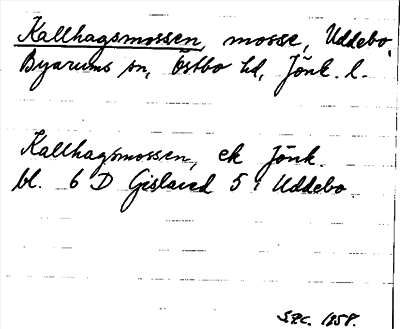 Kallhagsmossen, mosse, Uddebo,
Byarums sn, Östbo hd, Jönk. l.
Kallhagsmossen, ek Jönk.
bl. 6 D Gislaved 5 i Uddebo.
1958.